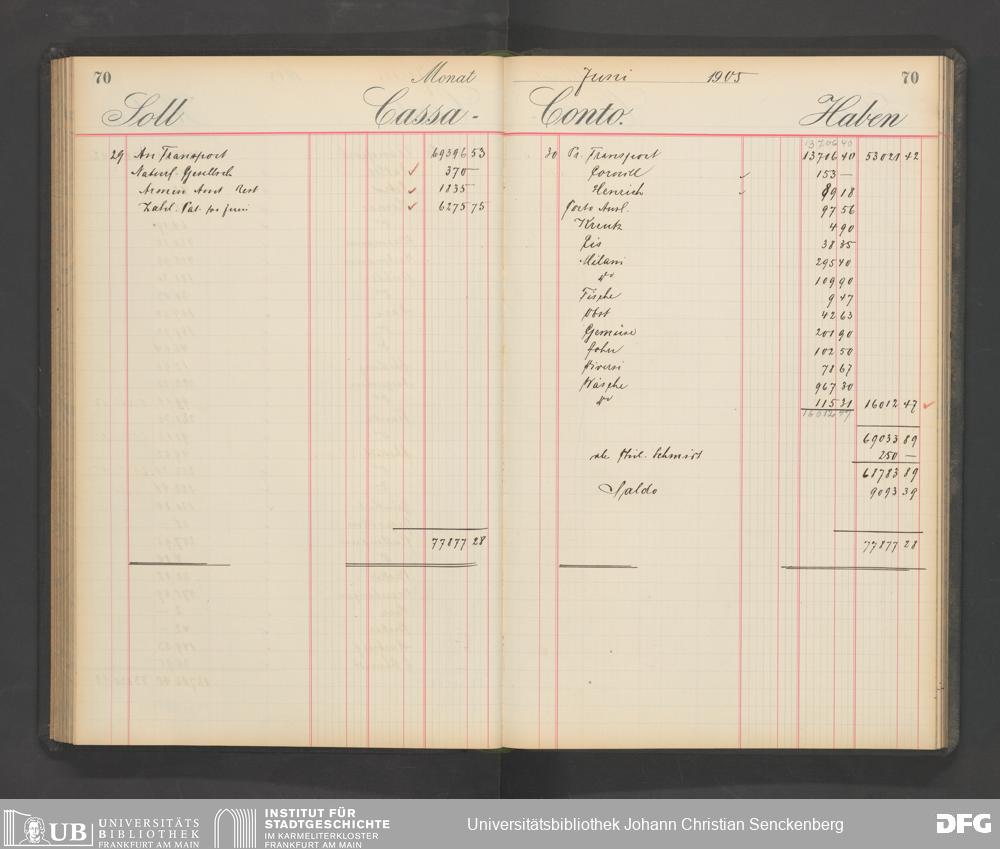 70 Monat
Soll Cassa-
29 An Transport 69396 53
Naturf. Gesellsch 370 —
Armen Amt Rest 1835
Zahl. Pat. pr Juni 6275 75
77877 28
Juni 1905 70
Conto. Haben
13706 40
30 Pr. Transport 13706 40 53021 42
Cornill 153 —
Heinrich 89 18
Porto Ausl. 97 56
Kreutz 4 90
Eis 38 35
Milani 295 40
do 109 90
Fische 9 47
Obst 42 63
Gemüse 201 90
102 50
Diversi 78 67
Wäsche 967 30
do 115 31 16012 47
16012 47
69033 89
Phil. Schmidt 250 —
68783 89
Saldo 9093 39
77877 28
UB UNIVERSITÄTS
BIBLIOTHEK
FRANKFURT AM MAIN
INSTITUT FÜR
STADTGESCHICHTE
IM KARMELITERKLOSTER
FRANKFURT AM MAIN
Universitätsbibliothek Johann Christian Senckenberg
DFG